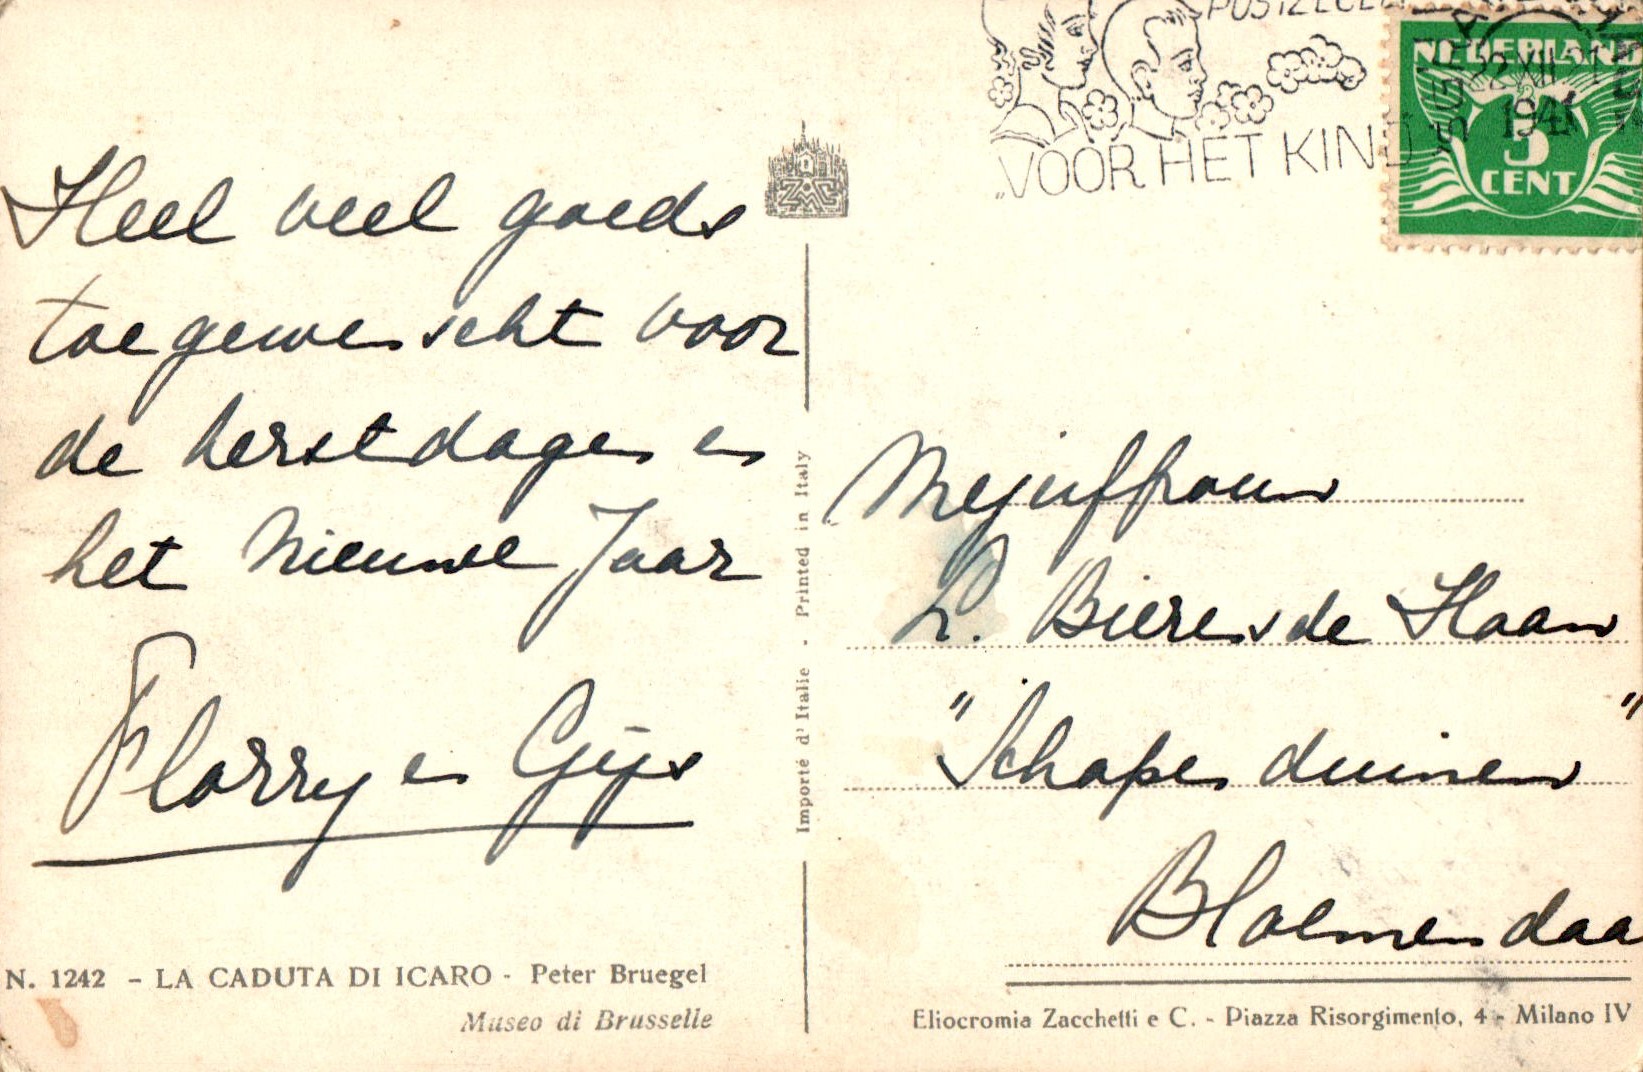 Heel veel goeds
toegewenscht voor
de kerstdagen en
het Nieuwe Jaar
Florry en Gijs
N. 1242 – LA CADUTA DI ICARO - Peter Bruegel
Museo di Brusselle
Importé d'Italie - Printed in Italy
ZMC
„VOOR HET KIND
NEDERLAND
22 XII
1941
3
CENT
Mejuffrouw
L. Bierens de Haan
"Schapenduinen"
Bloemendaa
Eliocromia Zacchetti e C. - Piazza Risorgimento, 4 - Milano IV